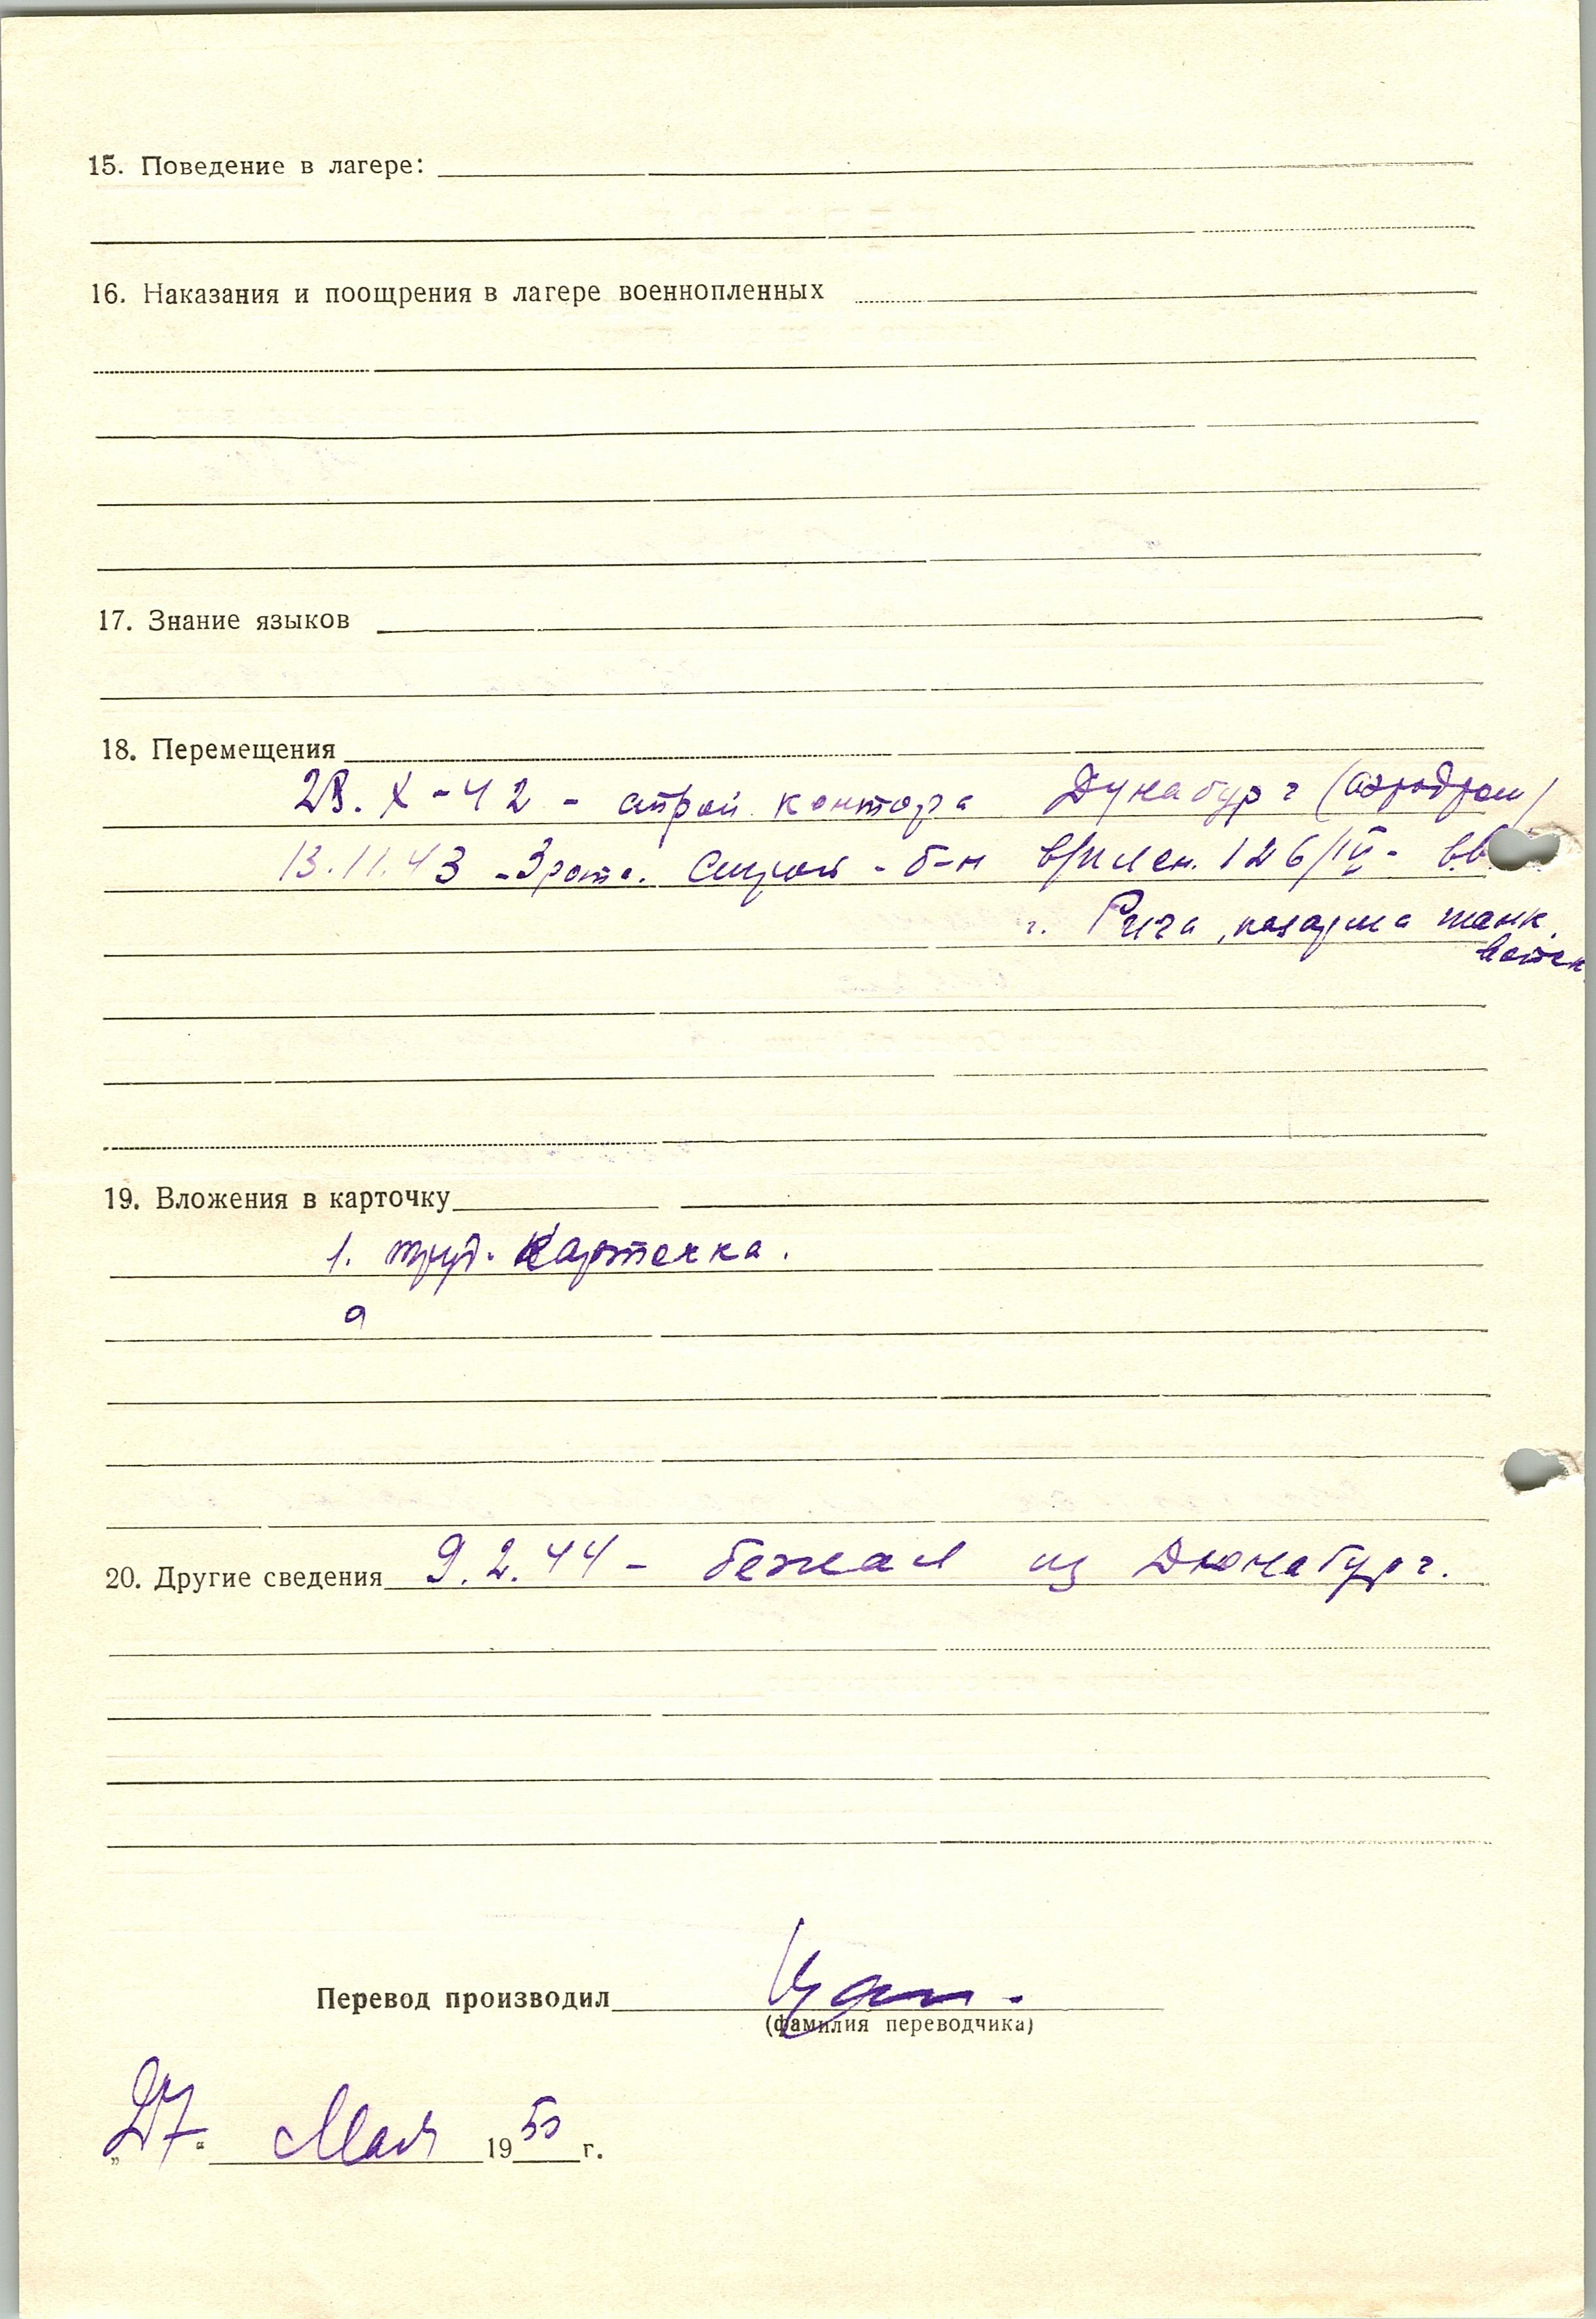 15. Поведение в лагере:
16. Наказания и поощрения в лагере военнопленных
17. Знание языков
18. Перемещения
28. X-42 - строй. контора Дунабург (аэродром)
13.11.43 - 3 рота. Строй - б-н в/плен. 126/IV -
г. Рига, казарма танк.
19. Вложения в карточку
1. труд. карточка.
20. Другие сведения 9.2.44 - бежал из Дюнабург.
Перевод производил
(фамилия переводчика)
„27“ Мая 1955 г.